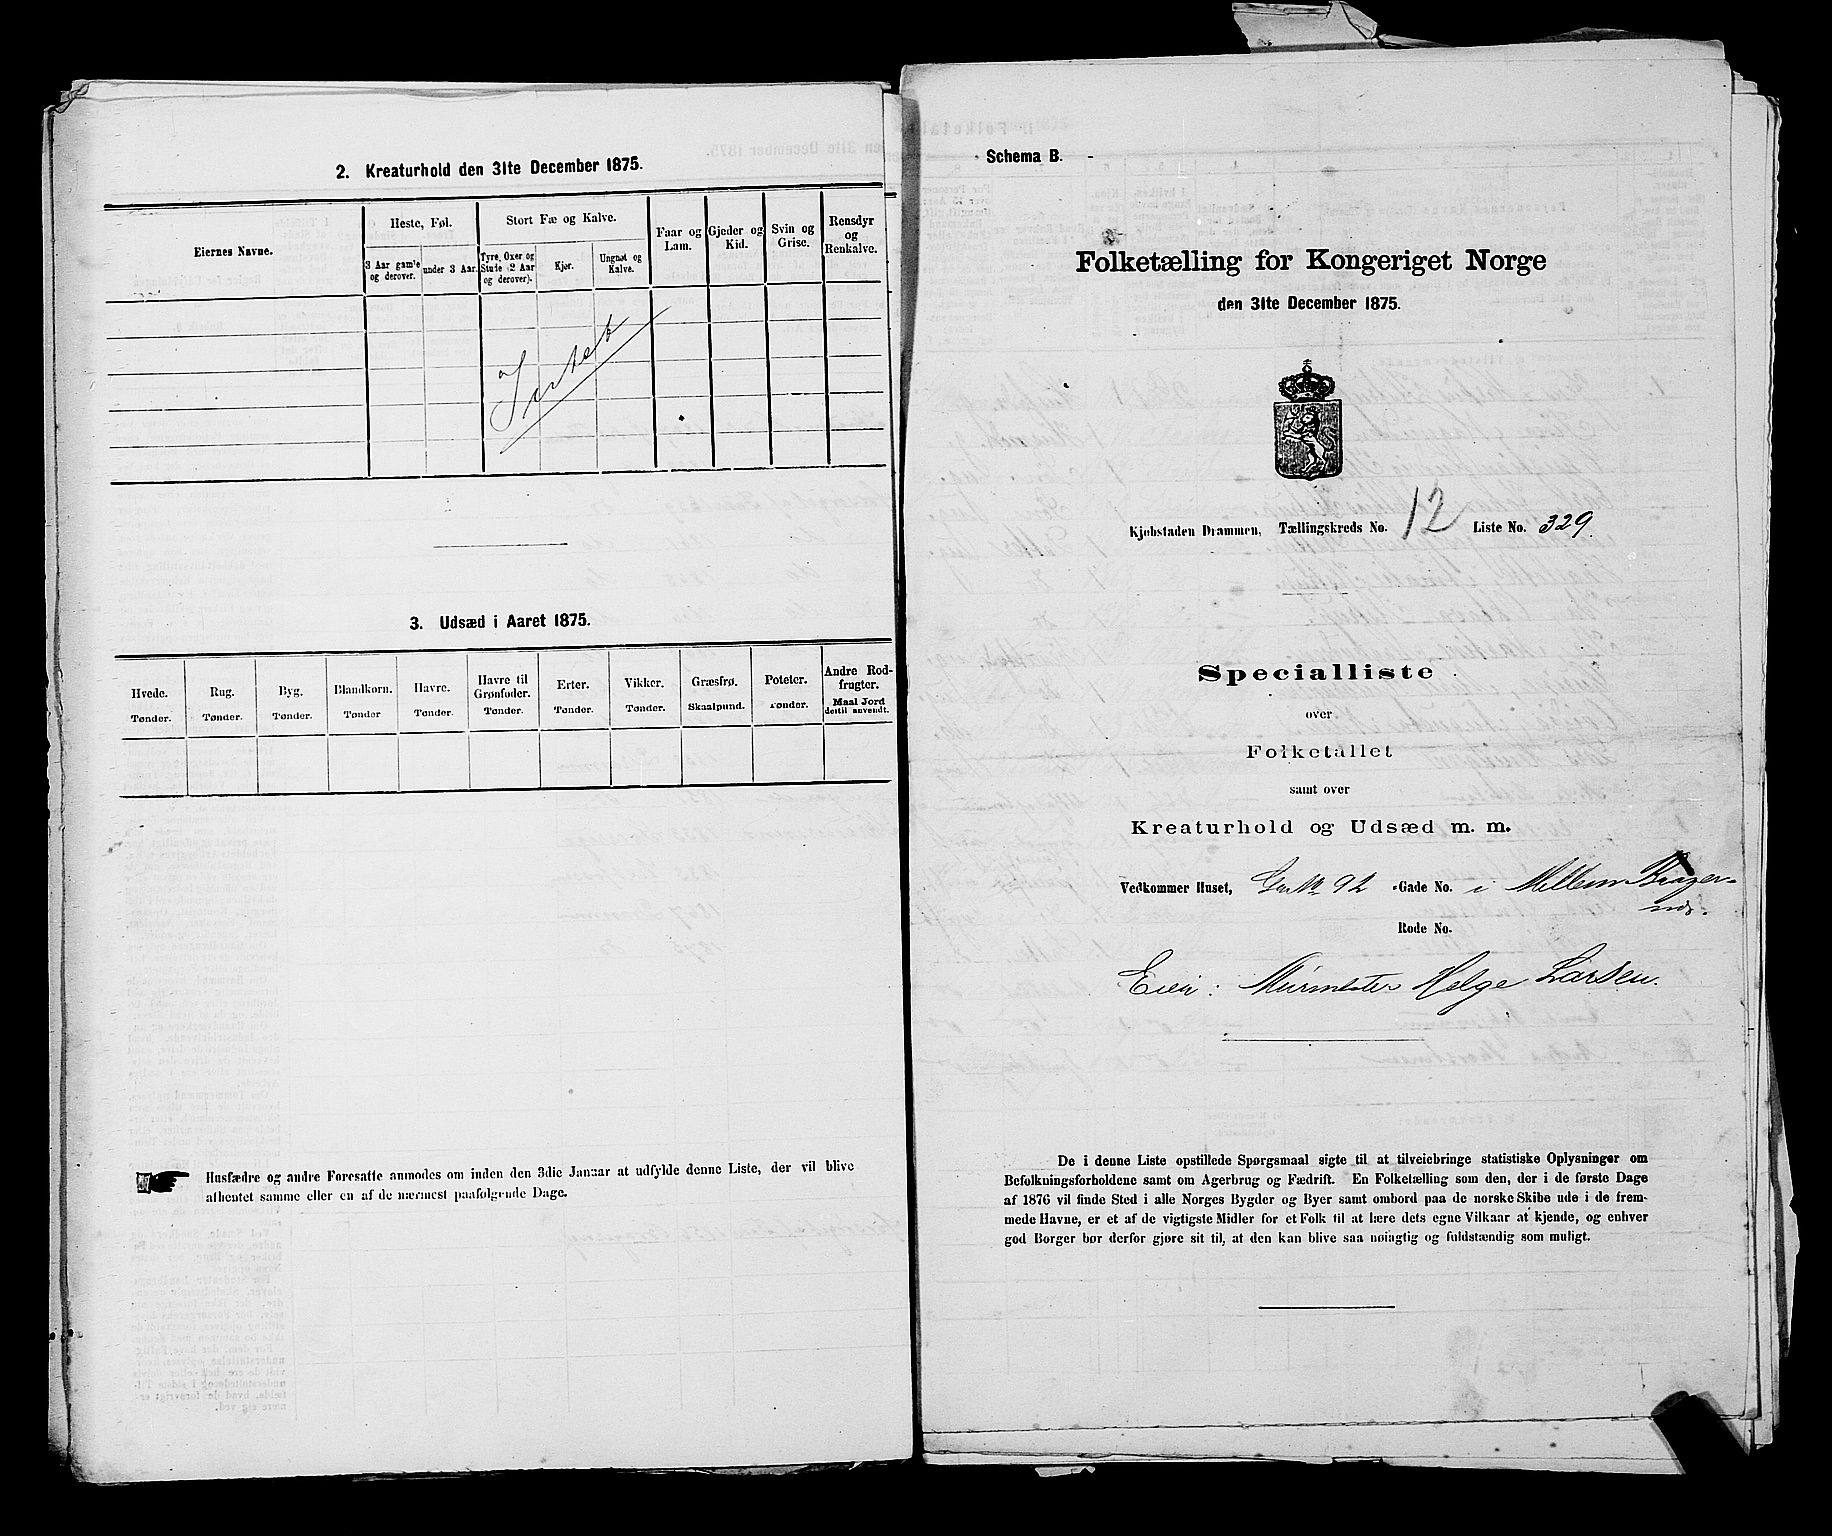 2. Kreaturhold den 31te December 1875.
Eiernes Navne.
Heste, Føl.
3 Aar gam'e og derover.
under 3 Aar.
Stort Fæ og Kalve.
Tyre, Oxer og Stude (2 Aar og derover).
Kjør.
Ungnøt og Kalve.
Faar og Lam.
Gjeder og Kid.
Svin og Grise.
Rensdyr og Renkalve.
3. Udsæd i Aaret 1875.
Hvede. Tønder.
Rug. Tønder.
Byg. Tønder.
Blandkorn. Tønder
Havre. Tønder.
Havre til Grønfoder. Tønder.
Erter. Tønder.
Vikker. Tønder.
Græsfrø. Skaalpund.
Poteter. Tønder.
Andre Rodfrugter. Maal Jord dertil anvendt.
Husfædre og andre Foresatte anmodes om inden den 3die Januar at udfylde denne Liste, der vil blive
afhentet samme eller en af de nærmest paafølgende Dage.
Schema B.
Folketælling for Kongeriget Norge
den 31te December 1875.
Kjøbstaden Drammen, Tællingskreds No. 12 Liste No. 329.
Specialliste
over
Folketallet
samt over
Kreaturhold og Udsæd m. m.
Vedkommer Huset, Gar No 92 Gade No. i Mellem Brager-
næs.
Rode No.
Eier: Murmester Helge Larsen.
De i denne Liste opstillede Spørgsmaal sigte til at tilveiebringe statistiske Oplysninger om
Befolkningsforholdene samt om Agerbrug og Fædrift. En Folketælling som den, der i de første Dage
af 1876 vil finde Sted i alle Norges Bygder og Byer samt ombord paa de norske Skibe ude i de frem-
mede Havne, er et af de vigtigste Midler for et Folk til at lære dets egne Vilkaar at kjende, og enhver
god Borger bør derfor gjøre sit til, at den kan blive saa nøiagtig og fuldstændig som muligt.